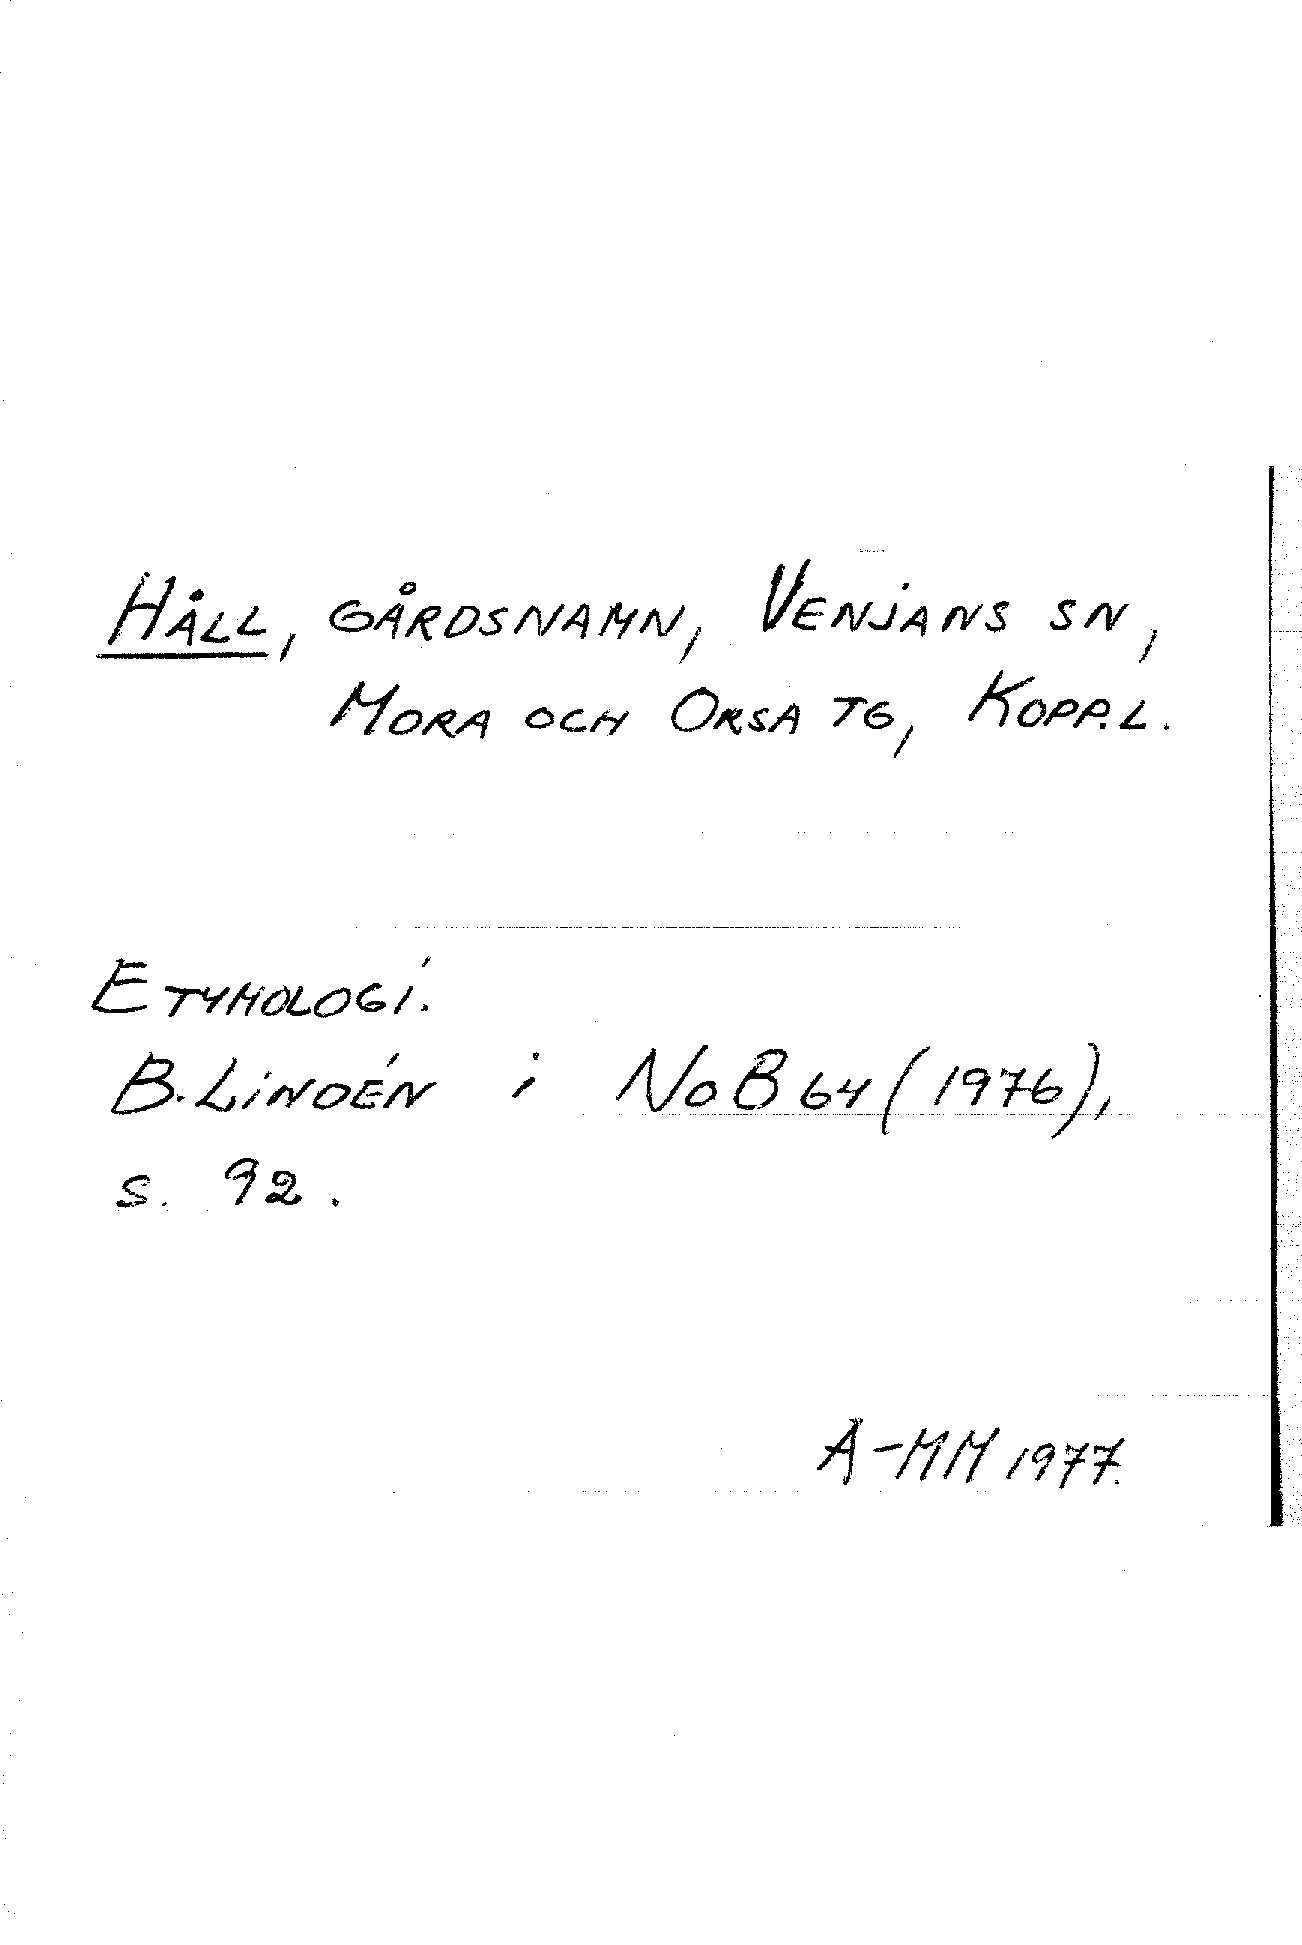 Håll, gårdsnamn, Venjans sn,
Mora och Orsa tg, Kopp.l.
Etymologi.
B. Lindén i NoB 64 (1976),
s. 92.
A-MM 1977.